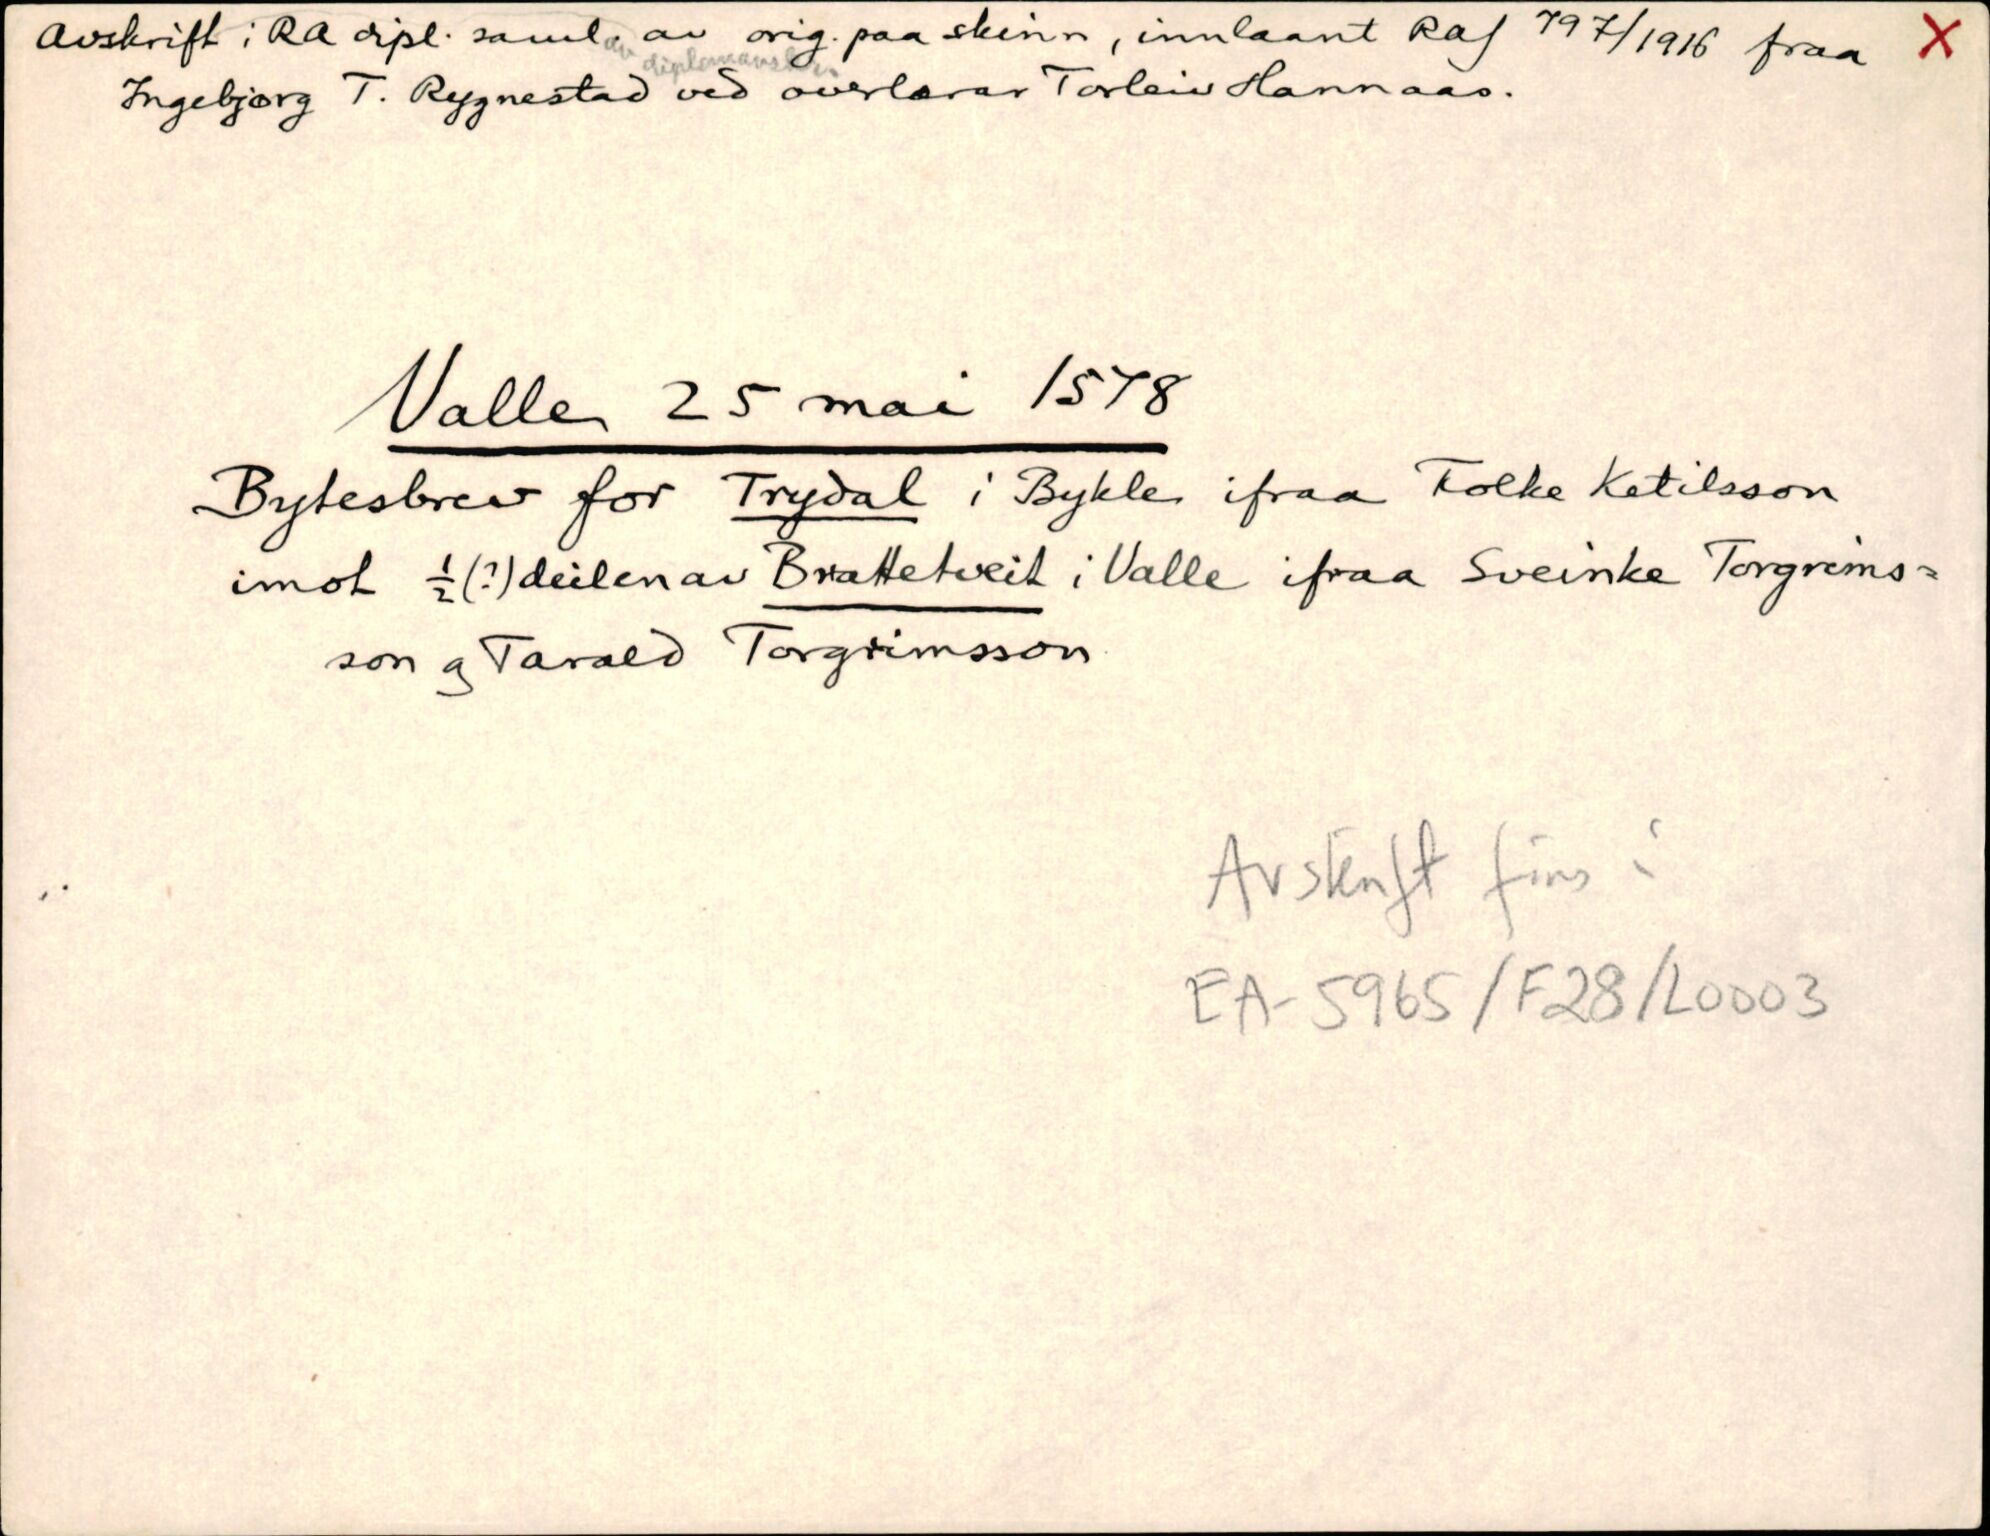 Avskrift i RA dipl. saml. av orig. paa skinn, innlaant RAJ 797/1916 fraa X
av diplomavskr.
Ingebjørg T. Rygnestad ved overlærar Torleiv Hannaas.
Valle, 25 mai 1578
Bytesbrev for Trydal i Bykle ifraa Folke Ketilsson
imot ½(?) deilen av Brattetveit i Valle ifraa Sveinke Torgrims=
son og Tarald Torgrimsson
Avskrift fins i
EA-5965/F28/L0003